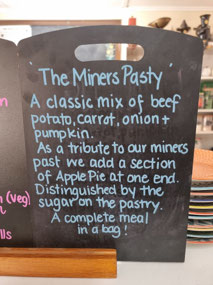 'The Miners Pasty'
A classic mix of beef
potato, carrot, onion +
pumpkin.
As a tribute to our miners
past we add a section
of Apple Pie at one end.
Distinguished by the
sugar on the pastry.
A complete meal
in a bag!
(Veg)